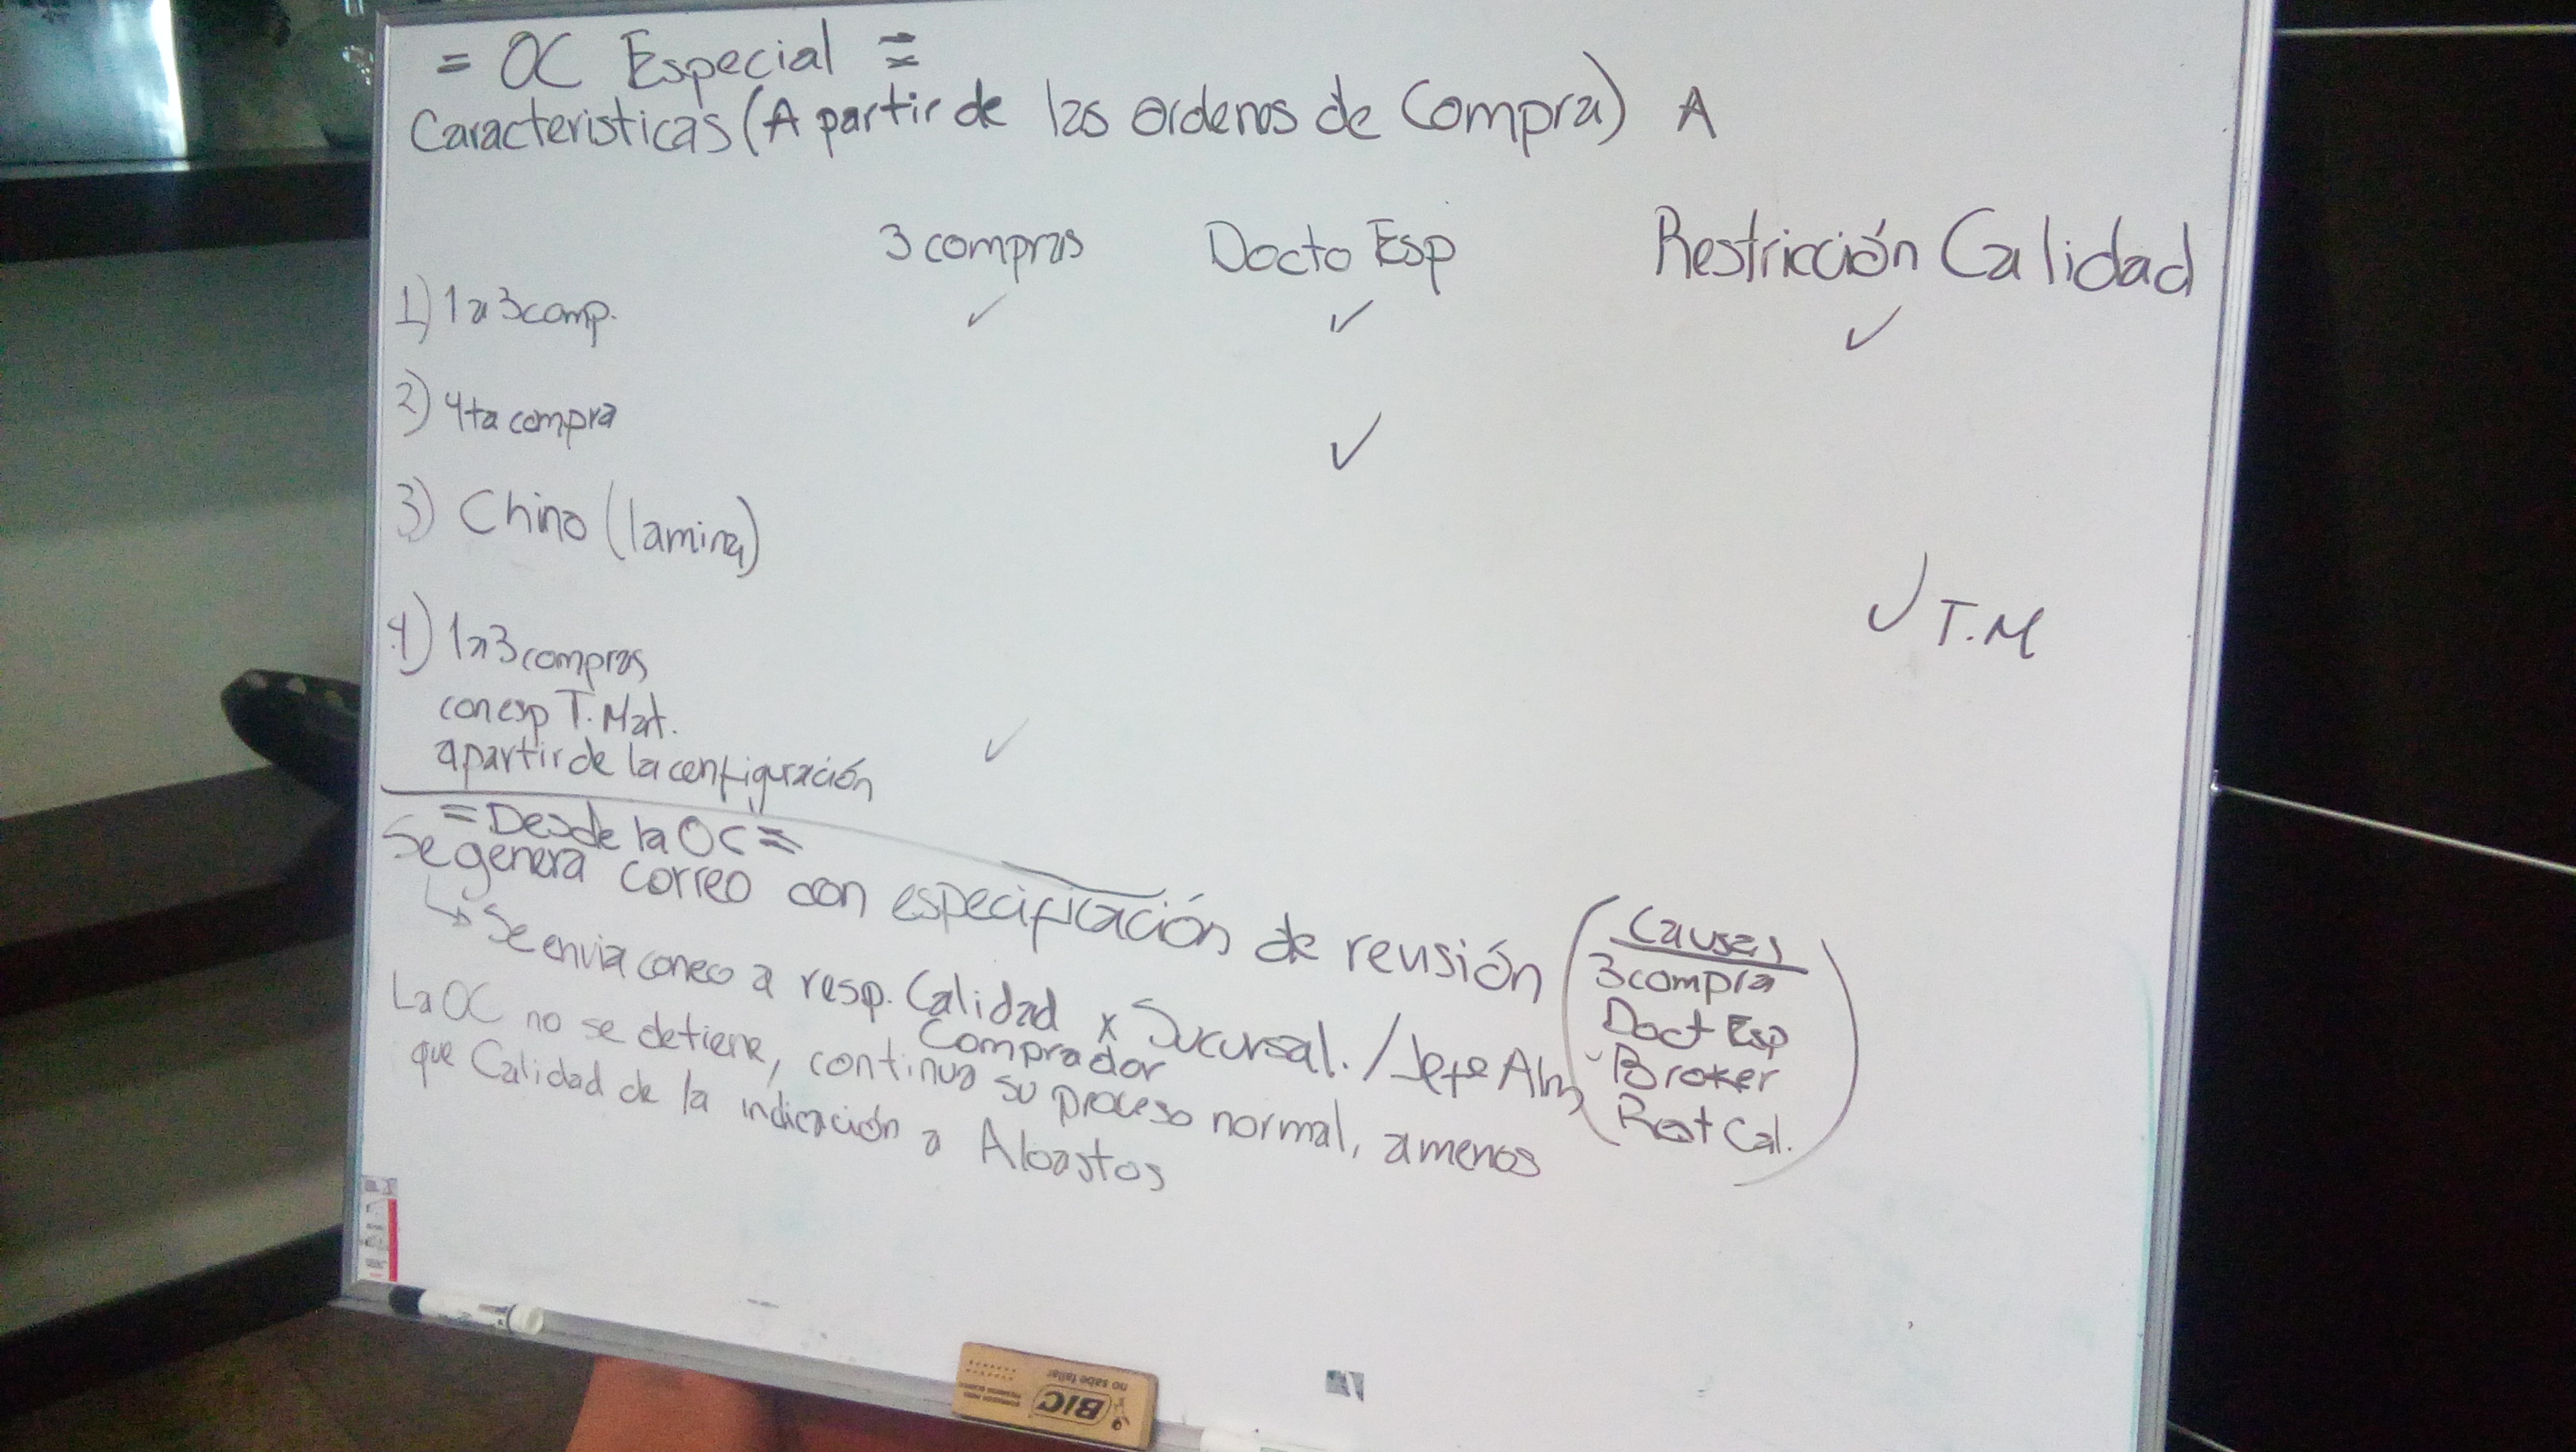 = OC Especial =
Caracteristicas (A partir de las ordenes de Compra) A
3 compras Docto Esp Restricción Calidad
1) 1 a 3 comp. ✓ ✓ ✓
2) 4ta compra ✓
3) Chino (lamina) ✓ T.M
4) 1 a 3 compras
con esp T. Mat.
a partir de la configuración ✓
= Desde la OC =
Se genera correo con especificación de revisión
↳ Se envia correo a resp. Calidad x Sucursal. / Jefe Alm
Comprador
La OC no se detiene, continua su proceso normal, a menos
que Calidad de la indicación a Abastos
Causas
3 compra
Doct Esp
Broker
Rest Cal.
BIC
no sabe fallar